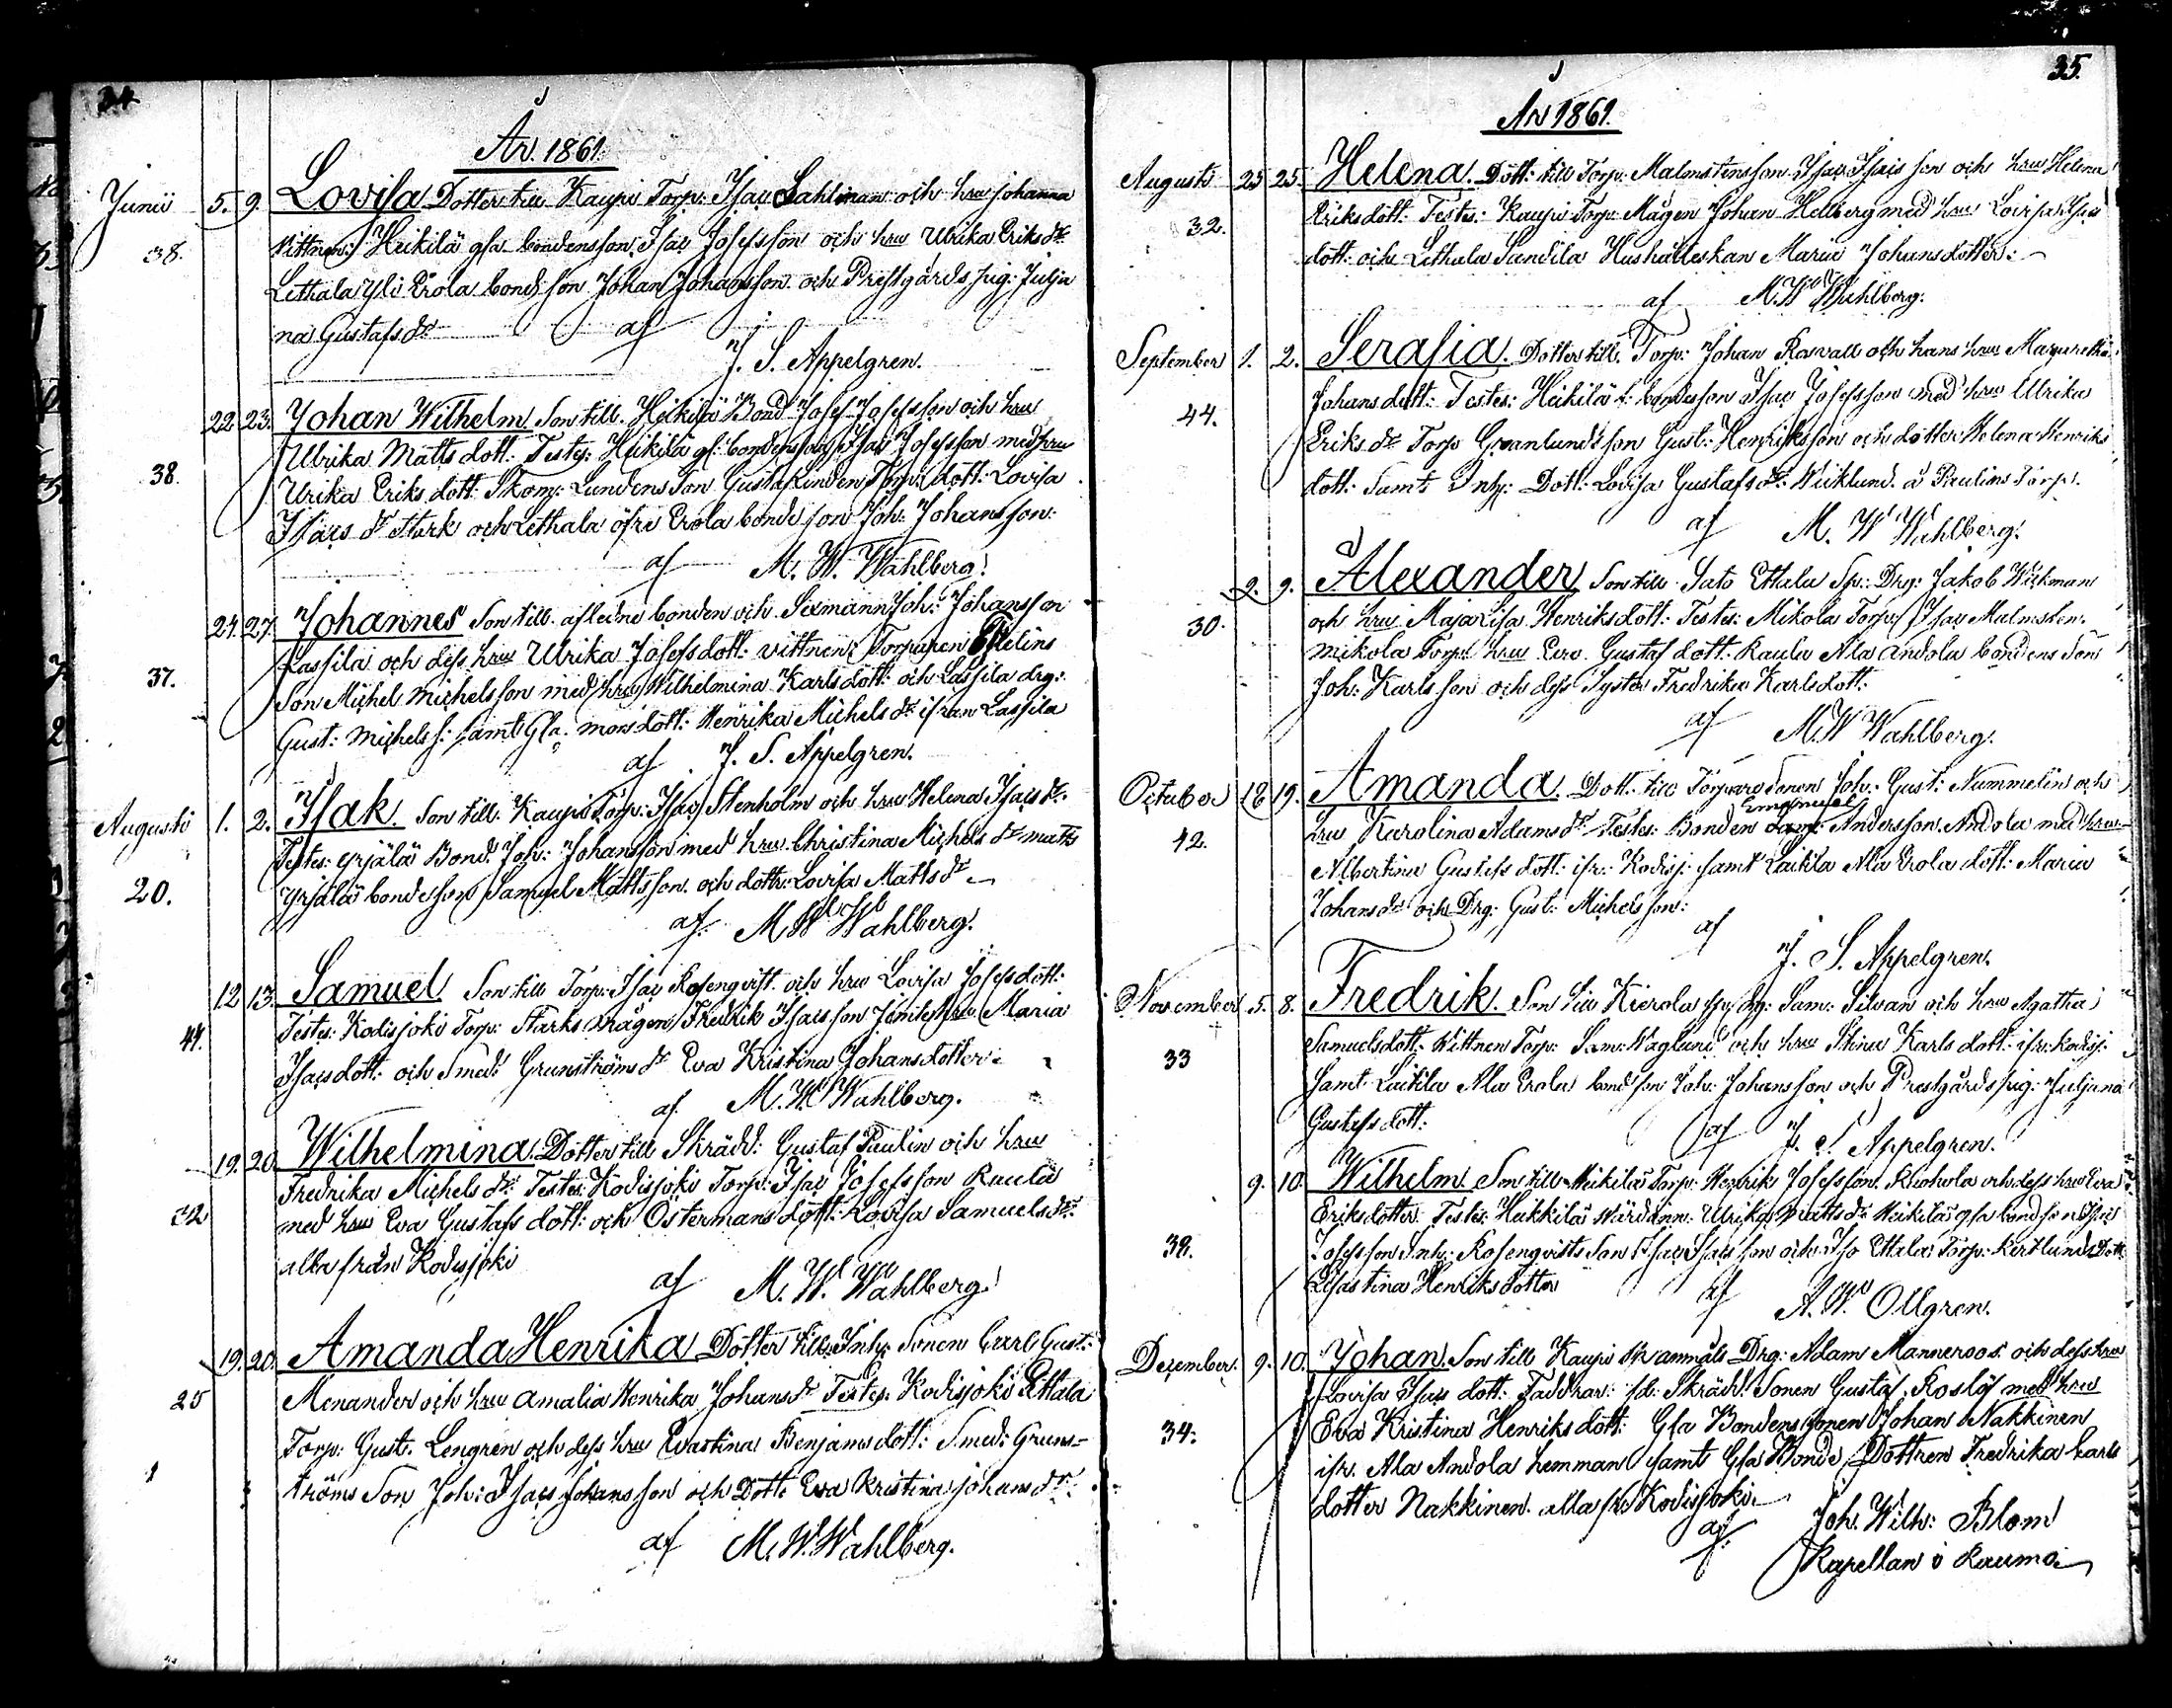 34.
År 1861.
Junii 5. 9. Lovisa Dotter till Kaupi Torp: Isac Sahlman och hru Johanna
38. Vittnen: Heikilä gla bondensson Isac Josefsson och hru Ulrika Eriks dr
Lethala Yli Erola bond son Johan Johansson och Prestgårds pig: Julja
na Gustafs dr af
J. S. Appelgren.
22. 23. Johan Wilhelm Son till Heikilä Bond Josef Josefsson och hru
Ulrika Matts dott: Testes: Heikilä gl: bondens son Isac Josefsson med hru
38. Urika Eriks dott: Skom: Lundens Son Gustaf Linden Torp: dott: Lovisa
Isacs dr Stark och Lethala öfre Erola bonde son Joh: Johansson:
af M. W. Wahlberg.
24. 27. Johannes Son till afledne bonden och Sexmann Joh: Johansson
Lassila och dess hru Ulrika Josefs dott: vittnen: Torparen
37. Son Michel Michelsson med hru Wilhelmina Karlsdott: och Lassila drg:
Gust: Michels s: samt Gla mors dott: Henrika Michels dr ifrån Lassila
af J. S. Appelgren.
Augusti 1. 2. Isak. Son till Kaupis Torp: Isac Stenholm och hru Helena Isacs dr.
Testes: Yrjälä Bond. Joh: Johansson med hru Christina Michels dr matts
20. Yrjälä bondesson Samuel Mattsson och dottr: Lovisa Matts dr
af M. W. Wahlberg.
12 13. Samuel Son till Torp: Isac Rosenqvist och hru Lovisa Josefs dott:
Testes: Kodisjoki Torp: Starks mågen Fredrik Isacsson jemte hru Maria
41. Isacsdott: och Smed: Grunströms dr Eva Kristina Johansdotter
af M. W. Wahlberg.
19. 20. Wilhelmina. Dotter till Skrädd: Gustaf Paulin och hru
Fredrika Michels dr: Testes: Kodisjoki Torp: Isac Josefsson Raula
32 med hru Eva Gustafs dott: och Östermans dott: Lovisa Samuels dr:
alla från Kodisjoki
af M. W. Wahlberg.
19. 20. Amanda Henrika Dotter till Inh: Sonen Carl Gust:
25 Menander och hru Amalia Henrika Johans dr Testes: Kodisjoki Ettala
Torp: Gust. Lengren och dess hru Evastina Benjams dott: Smed: Gruns-
tröms Son Joh: Isacs Johansson och Dott: Eva Kristina Johans dr:
af M. W. Wahlberg.
35.
År 1861.
Augusti 25 25. Helena. Dott: till Torp: Malmstensson Isac Isacsson och hru Helena
32. Eriks dott: Testes: Kaupis Torp: Mågen Johan Hellberg med hru Lovisa Isacs
dott: och Lethala Sandila Hushålleskan Maria Johansdotter:
af M. W. Wahlberg.
September 1. 2. Serafia. Dotter till Torp: Johan Rosvall och hans hru Margretha
44. Johans dott: Testes: Heikilä f: bondesson Isac Josefsson med hru Ulrika
Eriks dr Torp Granlunds son Gust: Henriksson och dotter Helena Henriks
dott: Samt Inh: Dott: Lovisa Gustafs dr: Wiklund å Paulins Torp.
af M. W. Wahlberg.
2. 9. Alexander Son till Sato Ettala Sp: Drg: Jakob Wickman
30. och hru Majalisa Henriksdott: Testes: Mikola Torp: Isac Malmsten.
Mikola Torp: hru Eva Gustaf dott: Raula Ala Andola bondens Son
Joh: Karlsson och dess Syster Fredrika Karlsdott:
af M. W Wahlberg.
October 18 19. Amanda. Dott: till Torpare sonen Joh: Gust: Nummelin och
Emanuel
42. hru Karolina Adams dr Testes: Bonden Andersson Andola med hru
Albertina Gustafs dott: ifr: Kodisj: samt Laitila Ala Erola dott: Maria
Johans dr och Drg: Gust: Michelsson:
af J. S. Appelgren.
November 5. 8. Fredrik. Son till Kierola Drg: Sam: Silvan och hru Agatha
33 Samuelsdott: Wittnen Torp: Sam: Haglund och hru Stina Karls dott: ifr: Kodisj:
Samt Laitila Ala Erola bond son Joh: Johansson och Prestgårds pig: Juljana
Gustafs dott:
af J. S. Appelgren.
9. 10. Wilhelm. Son till Heikilä Torp: Henrik Josefsson Ruohola och dess hru Eva
Eriksdotter Testes: Heikkilä Wärdinn: Ulrika Matts dr Heikilä gla bond son Isac
38. Josefsson Inh: Rosenqvists Son Isac Isacsson och Iso Ettala Torp: Kertlunds Dott
Lisastina Henriksdotter
af A. W. Ollgren.
December 9. 10. Johan. Son till Kaupis Drg: Adam Manneroos och dess hru
Lovisa Isacs dott: Faddrar: Skrädd: Sonen Gustaf Roslöf med hru
34. Eva Kristina Henriks dott: Gla Bondens sonen Johan Nakkinen
ifr. Ala Andola hemman samt Gla Bonde Dottren Fredrika Carls
dotter Nakkinen. alla fr: Kodisjoki.
af Joh. Wilh: Blom
Kapellan i Raumo